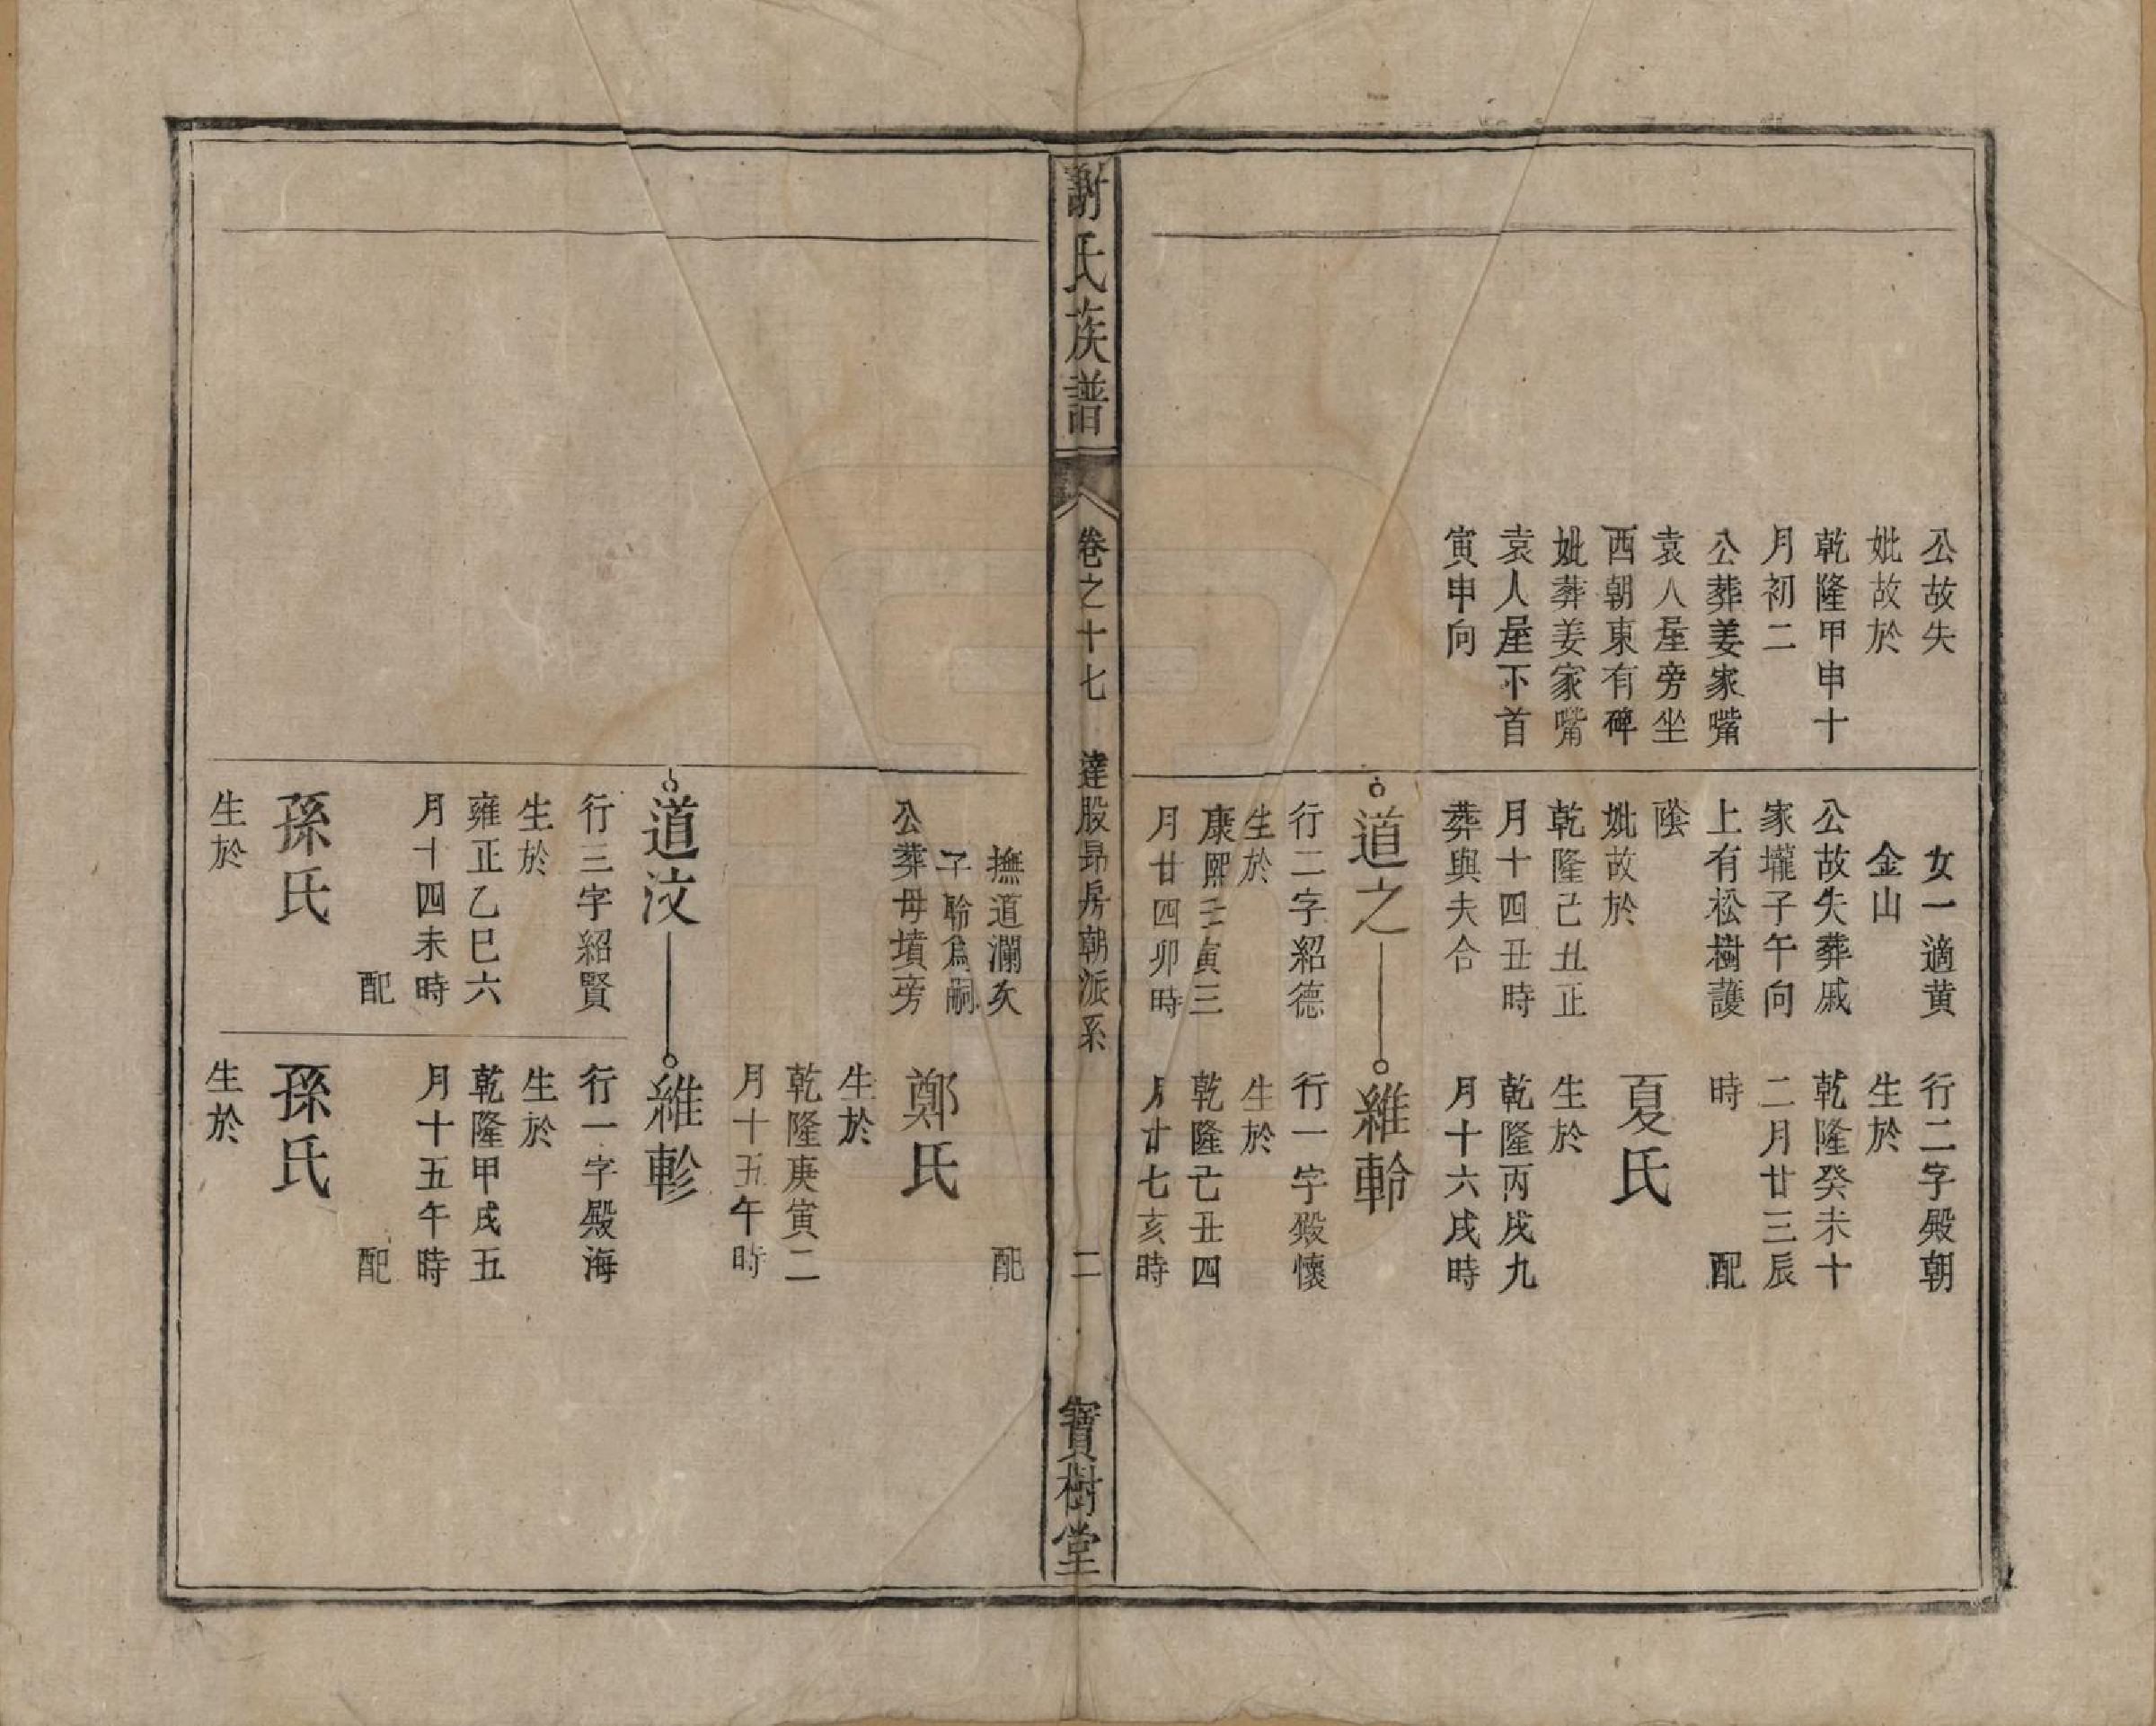 公故失
妣故於
乾隆甲申十
月初二
公葬姜家嘴
袁人屋旁坐
西朝東有碑
妣葬姜家嘴
袁人屋下首
寅申向
女一適黄
金山
公故失葬戚
家壠子午向
上有松樹護
蔭
妣故於
乾隆己丑正
月十四丑時
葬與夫合
道之
行二字紹德
生於
康熙壬寅三
月廿四卯時
行二字殿朝
生於
乾隆癸未十
二月廿三辰
時 配
夏氏
生於
乾隆丙戌九
月十六戌時
維軨
行一字殿懷
生於
乾隆己丑四
月廿七亥時
謝氏族譜
卷之十七 達股昂房朝派系
二
寶樹堂
撫道瀾次
子聆爲嗣
公葬母墳旁
道汶
行三字紹賢
生於
雍正乙巳六
月十四未時
配
孫氏
生於
配
鄭氏
生於
乾隆庚寅二
月十五午時
維軫
行一字殿海
生於
乾隆甲戌五
月十五午時
配
孫氏
生於